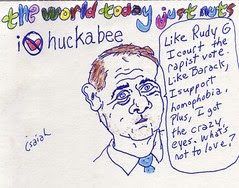 the world today just nuts
i huckabee
Like Rudy G
I court the
rapist vote.
Like Barack,
I support
homophobia.
Plus, I got
the crazy
eyes. What's
not to love?
isaiah